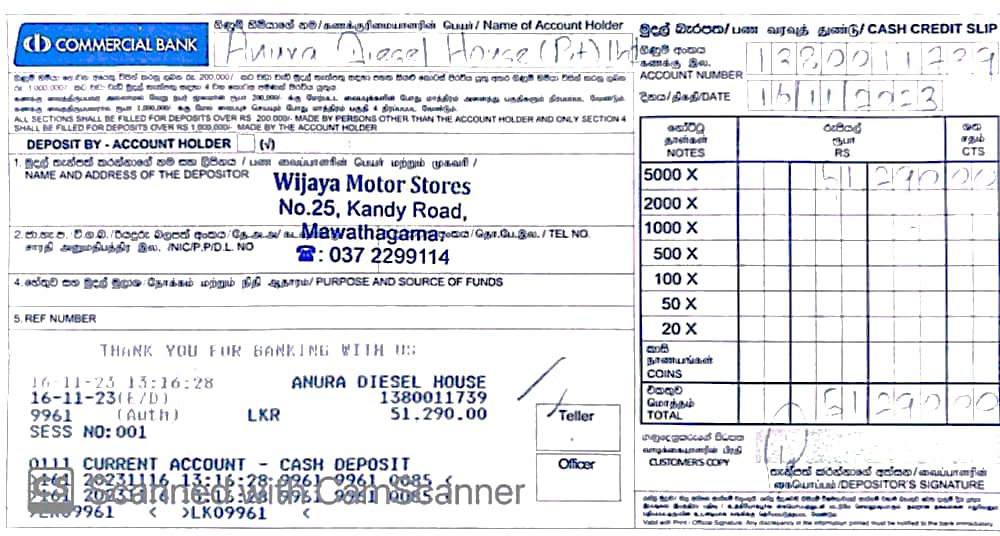 COMMERCIAL BANK
ගිණුම් හිමියාගේ නම/கணக்குரிமையாளரின் பெயர்/ Name of Account Holder
Anura Diesel House (Pvt) Ltd
ALL SECTIONS SHALL BE FILLED FOR DEPOSITS OVER RS 200,000/- MADE BY PERSONS OTHER THAN THE ACCOUNT HOLDER AND ONLY SECTION 4
SHALL BE FILLED FOR DEPOSITS OVER RS 1,000,000/- MADE BY THE ACCOUNT HOLDER
DEPOSIT BY - ACCOUNT HOLDER (√)
1. මුදල් තැන්පත් කරන්නාගේ නම සහ ලිපිනය / பண வைப்பாளரின் பெயர் மற்றும் முகவரி /
NAME AND ADDRESS OF THE DEPOSITOR
Wijaya Motor Stores
No.25, Kandy Road,
Mawathagama.
☎: 037 2299114
TEL NO.
சாரதி அனுமதிபத்திர இல. /NIC/P.P/D.L. NO
4. හේතුව සහ මුදල් මූලාශ්‍ර/நோக்கம் மற்றும் நிதி ஆதாரம்/ PURPOSE AND SOURCE OF FUNDS
5. REF NUMBER
THANK YOU FOR BANKING WITH US
16-11-23 13:16:28 ANURA DIESEL HOUSE
16-11-23(E/D) 1380011739
9961 (Auth) LKR 51,290.00
SESS NO:001
0111 CURRENT ACCOUNT - CASH DEPOSIT
161 20231116 13:16:28 9961 9961 0085 <
>LK09961 < >LK09961 <
CS Scanned with CamScanner
Teller
Officer
මුදල් බැරපත/ பண வரவுத் துண்டு/ CASH CREDIT SLIP
ගිණුම් අංකය
கணக்கு இல.
ACCOUNT NUMBER
1380011739
දිනය/திகதி/DATE
16/11/2023
නෝට්ටු
தாள்கள்
NOTES
රුපියල්
ரூபா
RS
ශත
சதம்
CTS
5000 X 51 290 00
2000 X
1000 X
500 X
100 X
50 X
20 X
කාසි
நாணயங்கள்
COINS
එකතුව
மொத்தம்
TOTAL 51 290 00
ගනුදෙනුකරුගේ පිටපත
வாடிக்கையாளரின் பிரதி
CUSTOMER'S COPY
තැන්පත් කරන්නාගේ අත්සන/வைப்பாளரின்
கையொப்பம்/DEPOSITOR'S SIGNATURE
Valid with Print - Official Signature. Any discrepancy in the information printed must be notified to the bank immediately